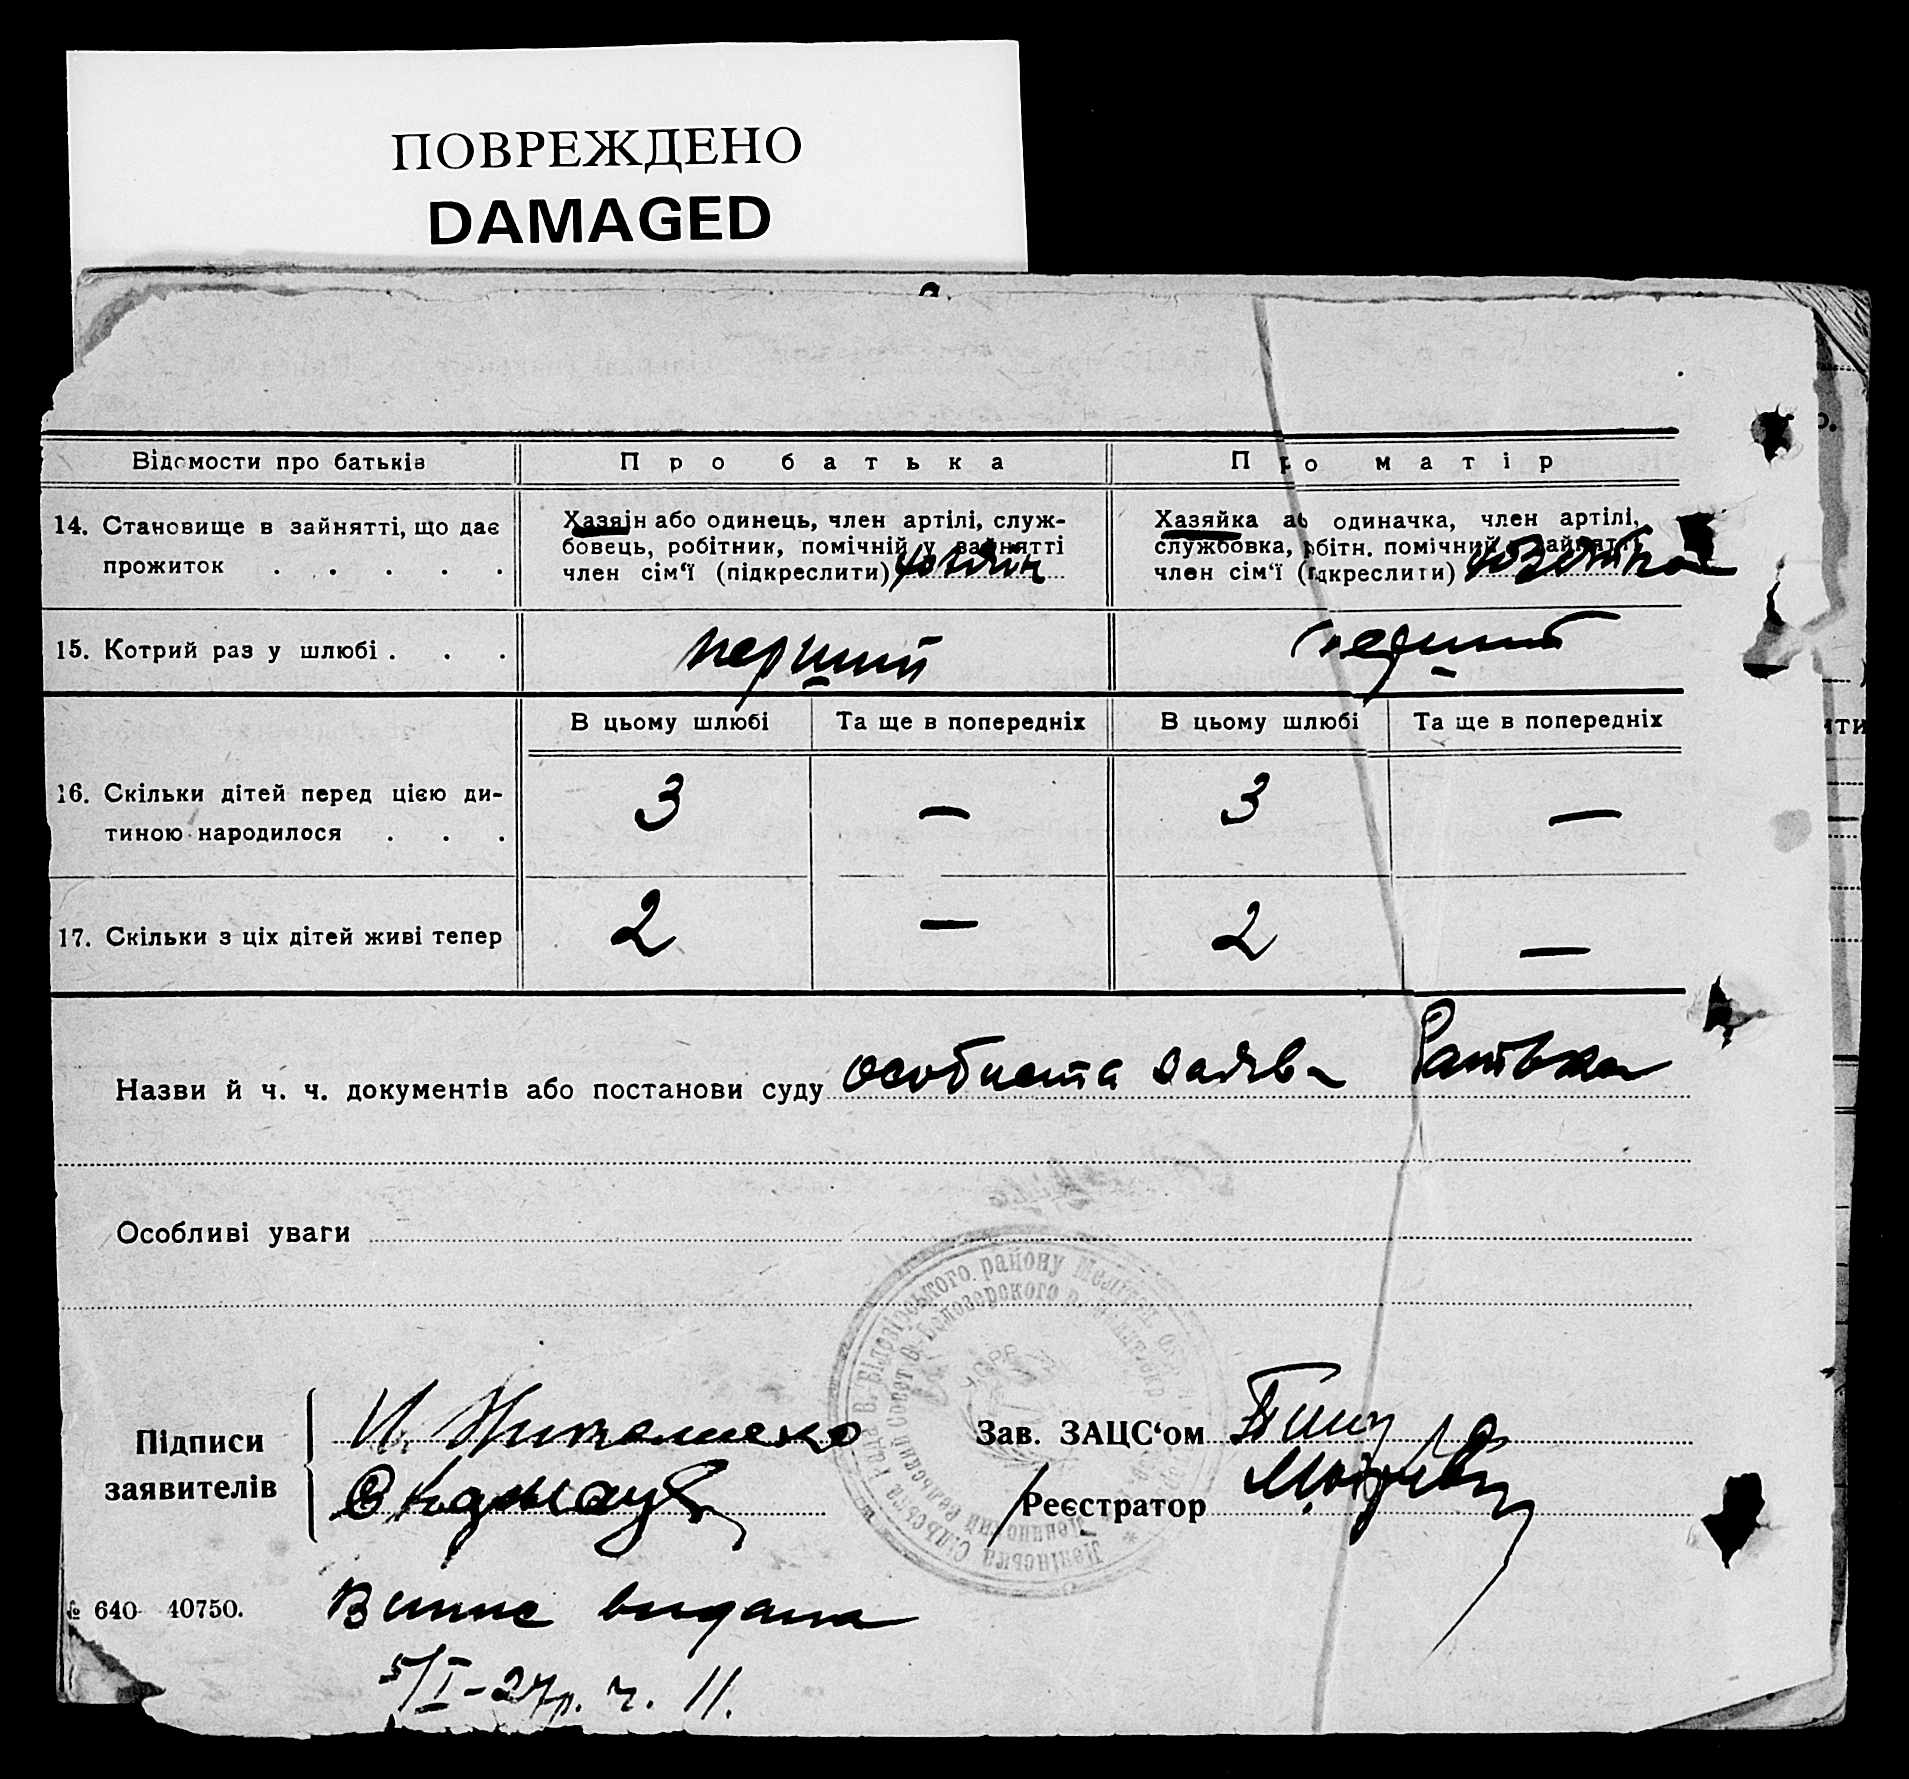 ПОВРЕЖДЕНО
DAMAGED
Відомости про батьків
Про батька
Про матір
14. Становище в зайнятті, що дає
прожиток . . . . .
Хазяїн або одинець, член артілі, служ-
бовець, робітник, помічний у зайнятті
член сім'ї (підкреслити) хазяїн
Хазяйка аб одиначка, член артілі,
службовка, рбітн. помічний зайнятті
член сім'ї (підкреслити)
15. Котрий раз у шлюбі . . .
перший
перший
В цьому шлюбі
Та ще в попередніх
В цьому шлюбі
Та ще в попередніх
16. Скільки дітей перед цією ди-
тиною народилося . . .
3 — 3 —
17. Скільки з ціх дітей живі тепер
2 — 2 —
Назви й ч. ч. документів або постанови суду особиста заява батька
Особливі уваги
Рада В. Білозірського району Мелітоп.
Совет В-Белозерского р.
УСРР
Ленінська Сільська
Підписи
заявителів
И.
Зав. ЗАЦС'ом
Реєстратор
№ 640 40750.
Випис видана
5/I-27р. ч. 11.